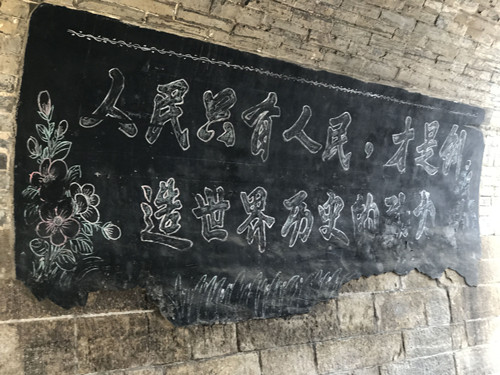 人民只有人民，才是创
造世界历史的动力